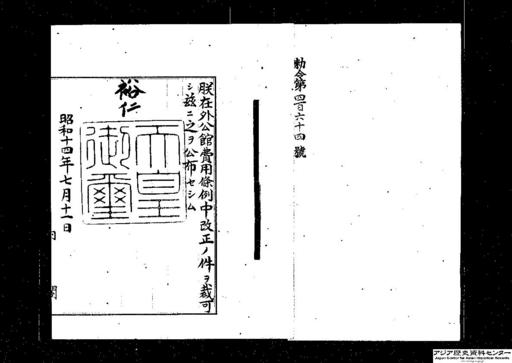 勅令第四百六十四號
朕在外公館費用條例中改正ノ件ヲ裁可
シ茲ニ之ヲ公布セシム
裕仁
天皇
御璽
昭和十四年七月十一日
内 閣
アジア歴史資料センター
Japan Center for Asian Historical Records